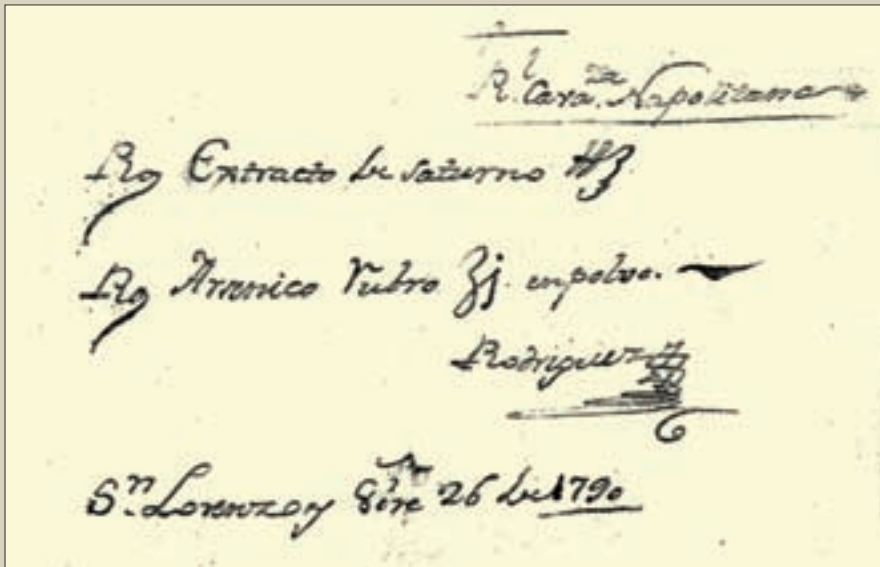 Rl. Cavaza. Napolitana
Rg Extracto de saturno
Rg Arsenico Rubro ʒj. en polvo.
Rodriguez
Sn. Lorenzo y 8bre 26 de 1790